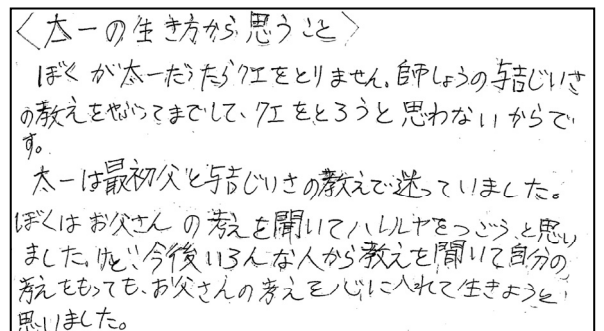 〈太一の生き方から思うこと〉
ぼくが太一だったらクエをとりません。師しょうの与吉じいさ
の教えをやぶってまでして、クエをとろうと思わないからで
す。
太一は最初父と与吉じいさの教えで迷っていました。
ぼくはお父さんの考えを聞いてハレルヤをつごうと思い
ました。けど、今後いろんな人から教えを聞いて自分の
考えをもっても、お父さんの考えを心に入れて生きようと
思いました。